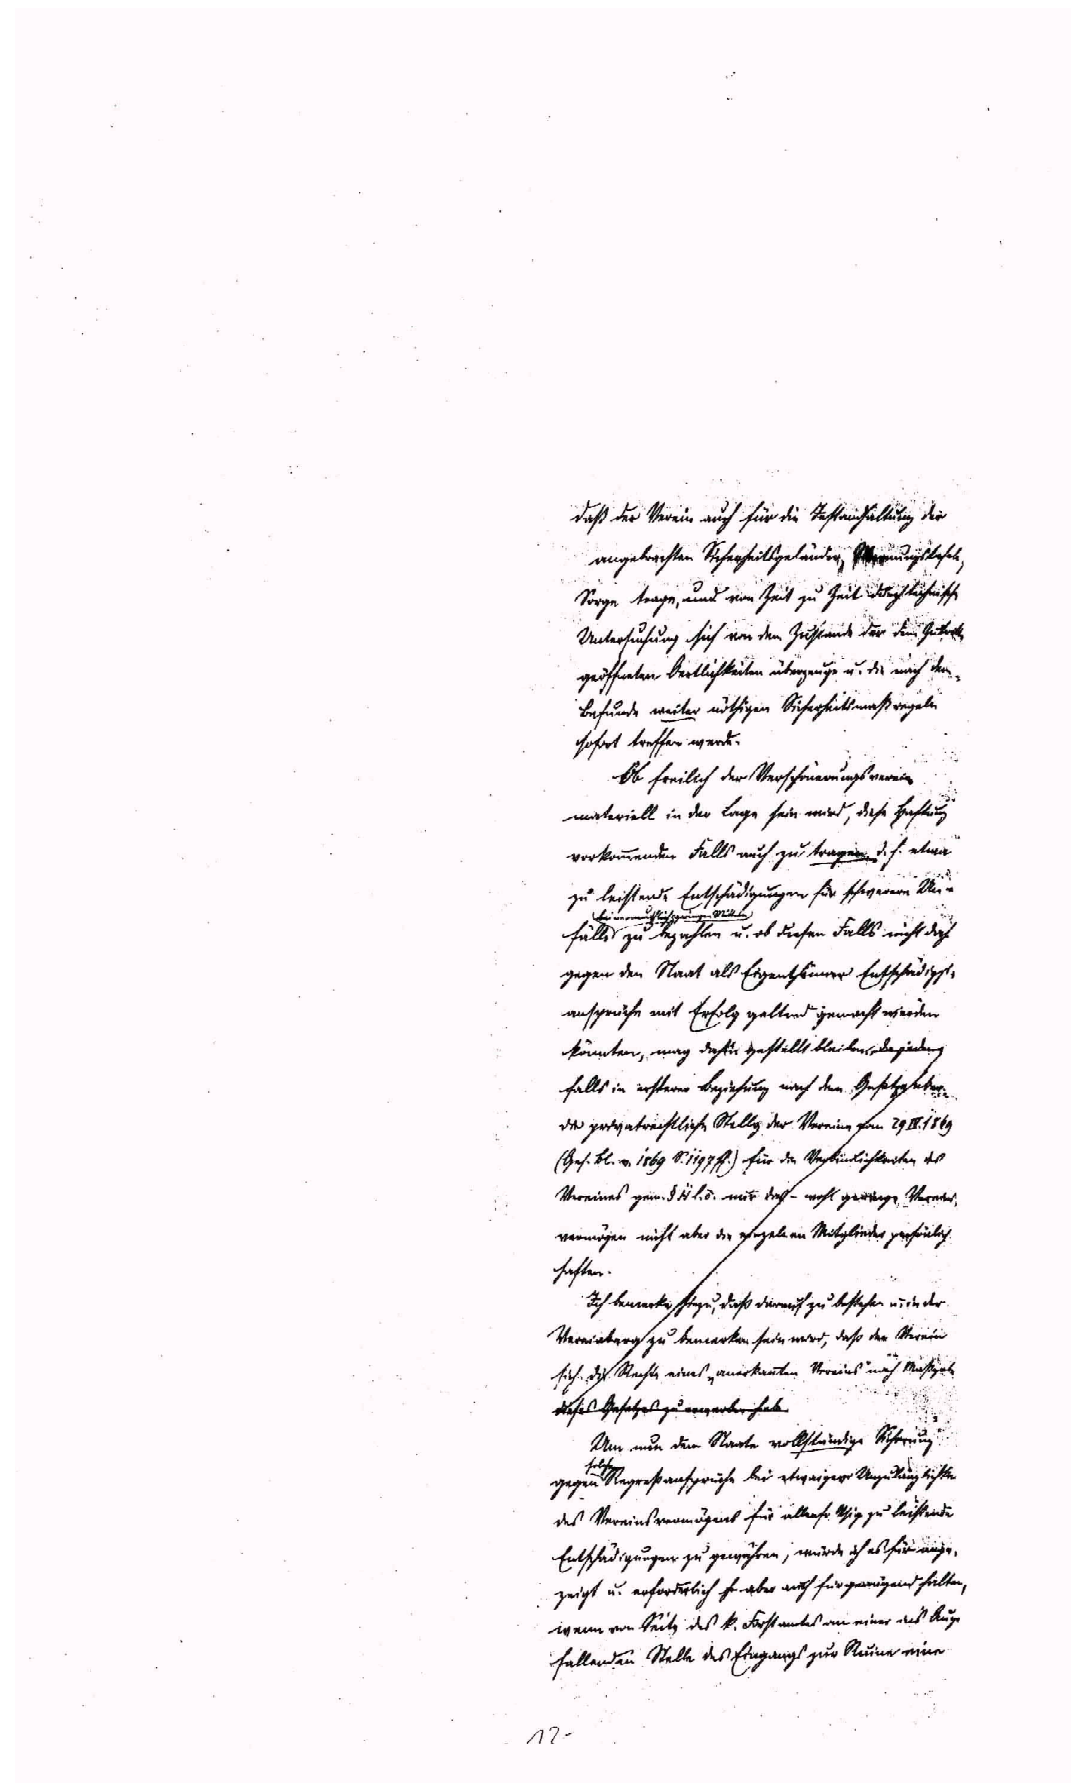 daß der Verein auch für die Instandhaltung der
angebrachten Sicherheitsgeländer, Warnungstafeln,
Sorge trage, und von Zeit zu Zeit durch technische
Untersuchung sich von dem Zustande der dem
geöffneten Oertlichkeiten überzeuge u. die nach dem
Befunde weiter nöthigen Sicherheitsmaßregeln
sofort treffen werde.
Ob freilich der Verschönerungsverein
materiell in der Lage sein wird, diese Haftung
vorkommenden Falls auch zu tragen, d. h. etwa
zu leistende Entschädigungen für schwerere Un-
fälle zu bezahlen u. ob diesen Falls nicht doch
gegen den Staat als Eigenthümer Entschädiggs-
ansprüche mit Erfolg geltend gemacht werden
könnten, mag dahin gestellt bleiben, da jeden-
falls in ersterer Beziehung nach dem Gesetz über
die privatrechtliche Stellg der Vereine vom 29.IV.1869
(Ges. Bl. v. 1869 S. 1197 ff.) für die Verbindlichkeiten des
Vereines gem. § nur das – wohl geringe Vereins-
vermögen nicht aber die einzelnen Mitglieder persönlich
haften.
Ich bemerke hiezu, daß darauf zu bestehen u. in der
zu bemerken sein wird, daß der Verein
sich die Rechte eines „anerkannten Vereins" nach Maßgabe
dieses Gesetzes zu erwerben habe.
Um nun dem Staate vollständige Sicherung
solche
gegen Regreßansprüche bei etwaiger Unzulänglichkeit
des Vereinsvermögens für zu leistende
Entschädigungen zu gewähren, würde ich es für ange-
zeigt u. erforderlich aber auch für genügend halten,
wenn von Seite des k. Forstamtes an einer ins Auge
fallenden Stelle des Eingangs zur Ruine eine
12-